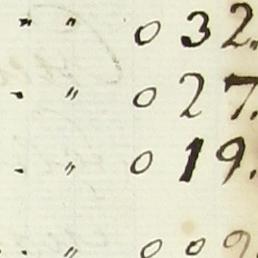 " " 0 32.
" " 0 27.
" " 0 19.
" " 0 09.